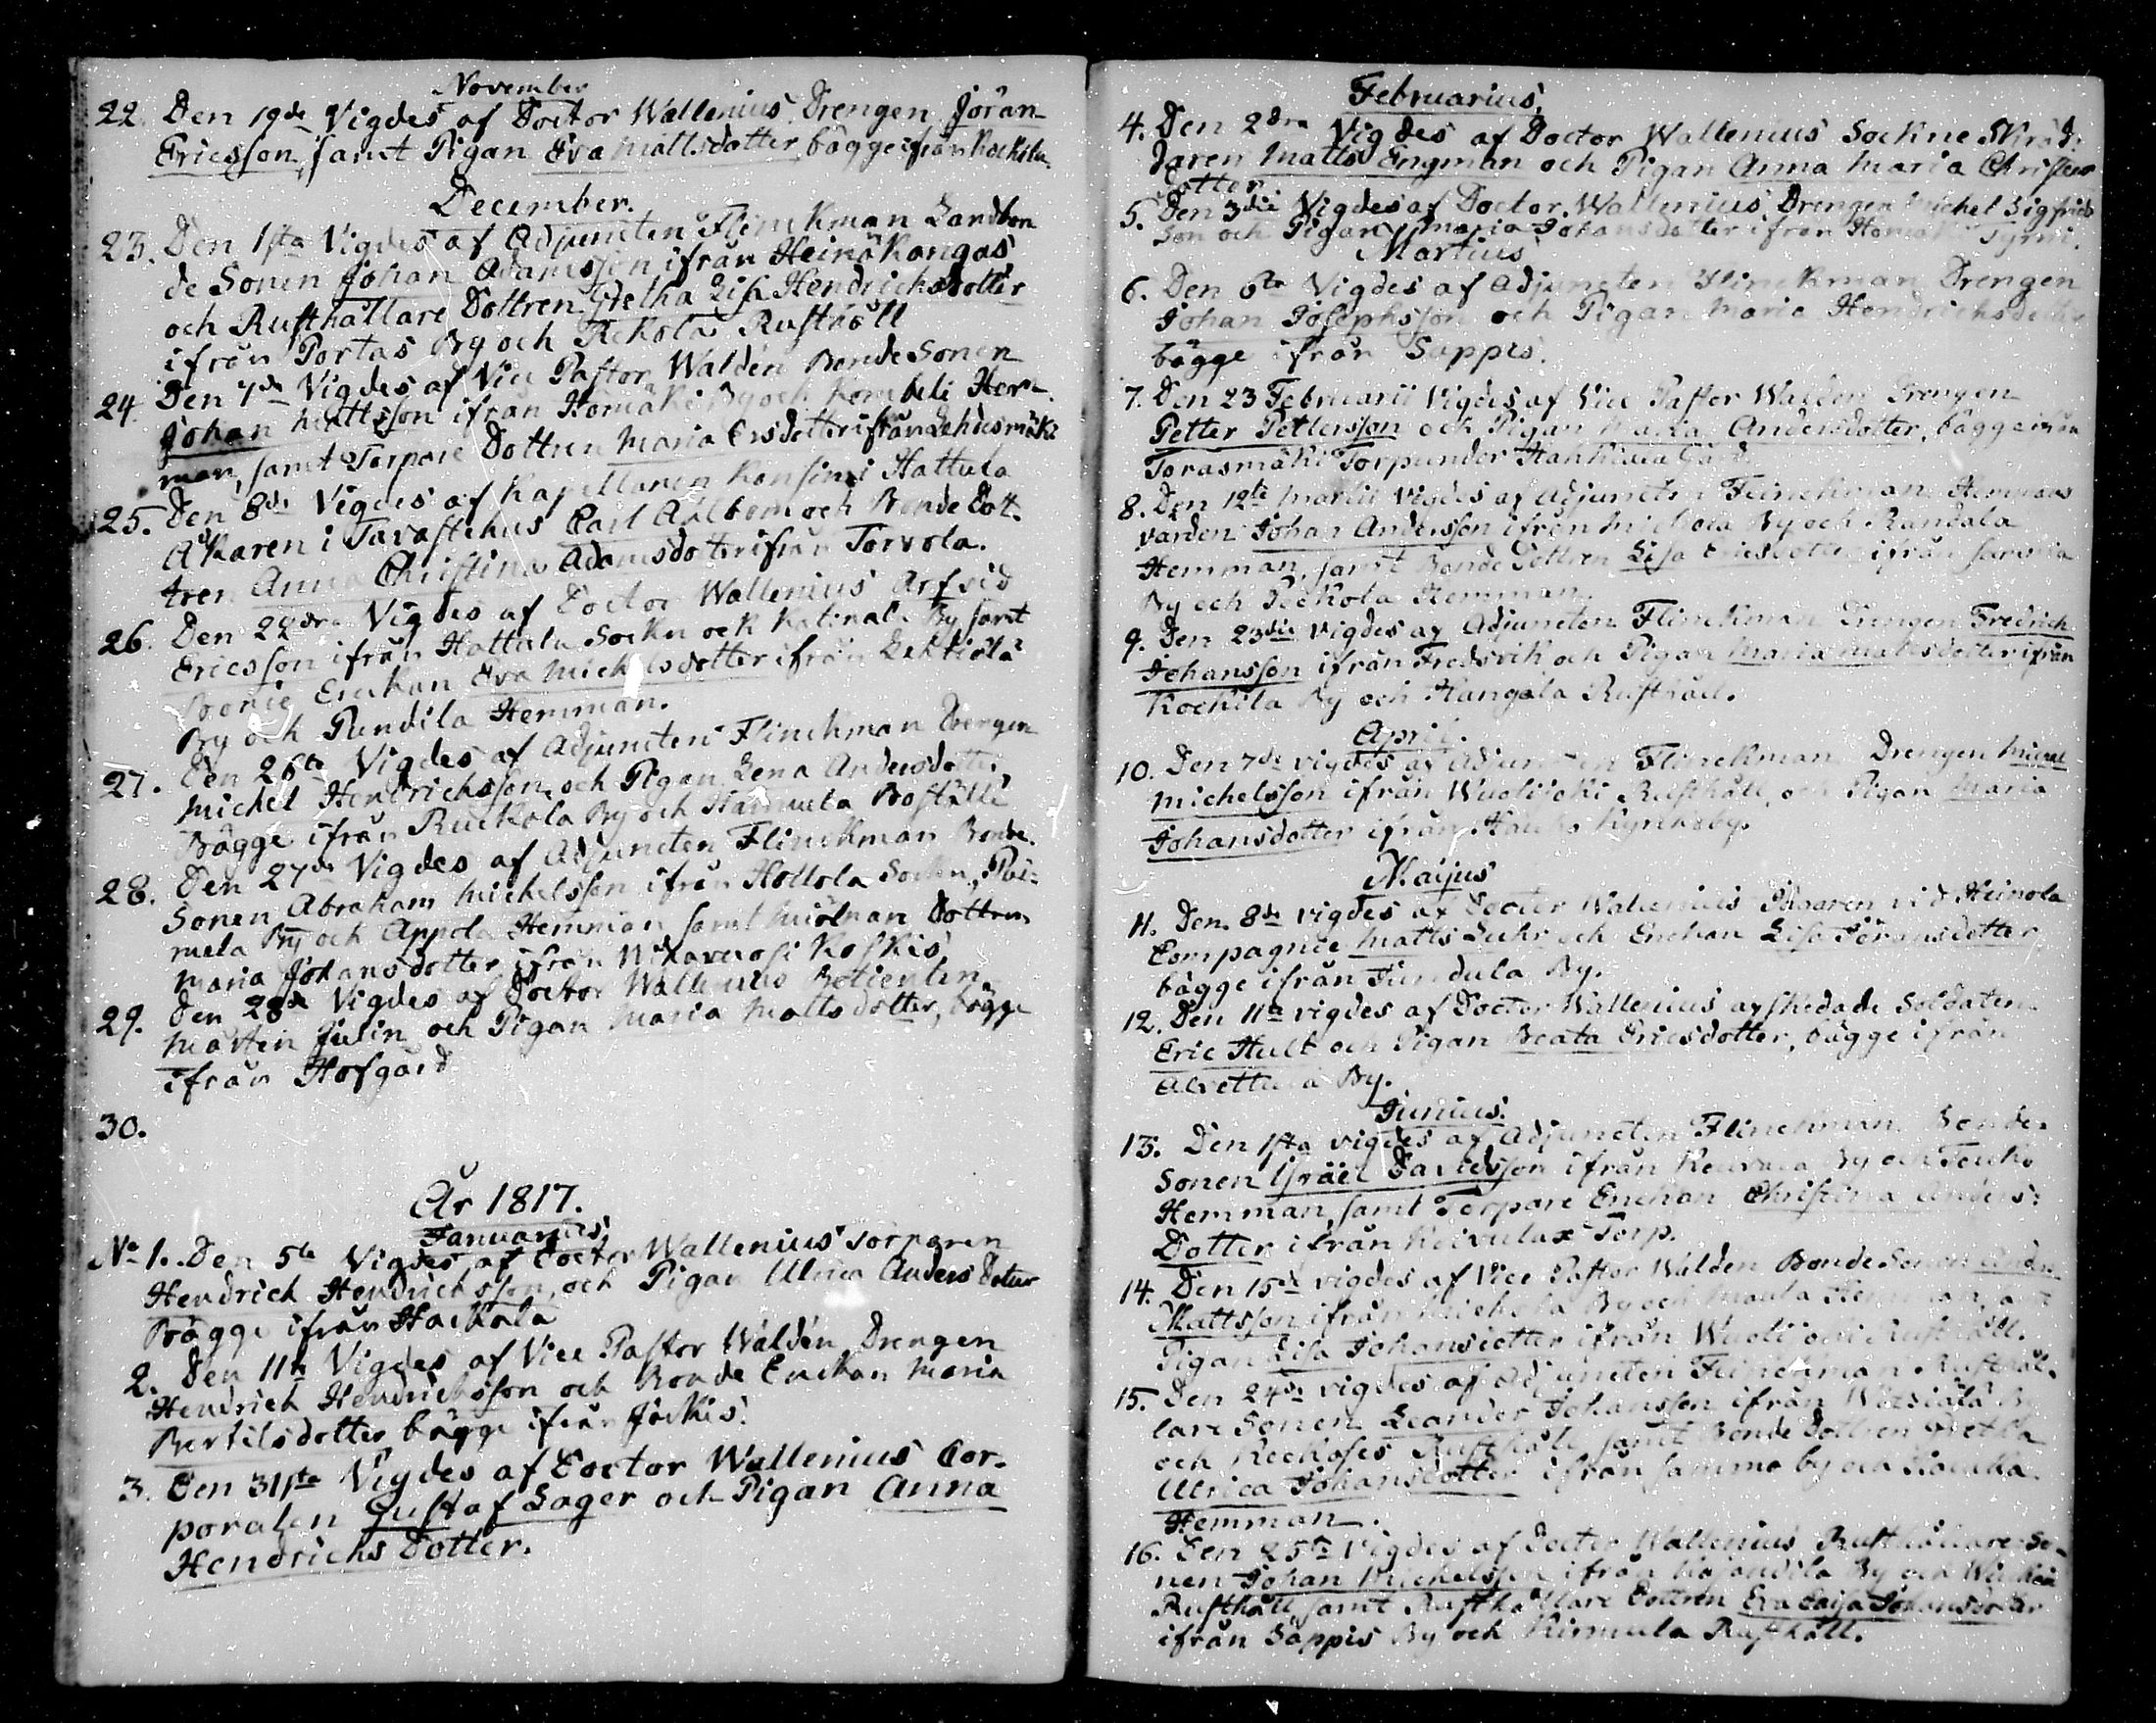 November
22. Den 19de Vigdes af Doctor Wallenius Drengen Jöran
Ericsson, samt Pigan Eva Mattsdotter, bägge ifrån Kockila
December.
23. Den 1sta Vigdes af Adjuncten Flinckman Landbon
de Sonen Johan Adamsson ifrån Heinäkangas
och Rusthållare Dottren Gretha Lisa Hendricksdotter
ifrån Portas By och Rekola Rusthåll
24. Den 7de Vigdes af Vice Pastor Waldén Bonde Sonen
Johan Mattsson ifrån Homäki By och Hem-
man, samt Torpare Dottren Maria Ersdotter ifrån Lehdesmäki
25. Den 8de Vigdes af Kapellanen i Hattula
Åkaren i Tavastehus Carl Ahlbom och Bonde Dot-
tren Anna Christina Adamsdotter ifrån Torvola.
26. Den 22dra Vigdes af Doctor Wallenius Arfvid
Ericsson ifrån Hattula Sockn och Katinala By samt
Bonde Enckan Eva Michelsdotter ifrån Lehtiälä
By och Pundila Hemman.
27. Den 26te Vigdes af Adjuncten Flinckman Drengen
Michel Hendricksson, och Pigan Lena Andersdotter,
Bägge ifrån Ruckola By och Boställe
28. Den 27de Vigdes af Adjuncten Flinckman Bonde
Sonen Abraham Michelsson ifrån Hollola Sockn, Pai-
mela By och Appola Hemman samt Miölnan Dottren
Maria Johansdotter ifrån Koskis
29. Den 28de Vigdes af Doctor Wallenius Betienten
Mårten Julin och Pigan Maria Mattsdotter, bägge
ifrån Hofgård
30.
År 1817.
Januarius,
No 1. Den 5te Vigdes af Doctor Wallenius Torparen
Hendrick Hendricksson, och Pigan Ulrica Anders Dotter
Bägge ifrån Hackala
2. Den 11te Vigdes af Vice Pastor Waldén Drengen
Hendrick Hendricksson och Bonde Enckan Maria
Bertilsdotter bägge ifrån Jockis.
3. Den 31sta Vigdes af Doctor Wallenius Cor-
poralen Gustaf Lager och Pigan Anna
Hendrichs Dotter.
Februarius,
4. Den 2dra Vigdes af Doctor Wallenius Sockne Skräd-
daren Matts Engman och Pigan Anna Maria Christers
dotter.
5. Den 3die Vigdes af Doctor Wallenius Drengen Michel Sigfrids
Son och Pigan Maria Johansdotter ifrån Homäki Tyrni.
Martius
6. Den 6te Vigdes af Adjuncten Flinckman Drengen
Johan Josephsson och Pigan Maria Hendricksdotter
bägge ifrån Sappis.
7. Den 23 Februarii Vigdes af Vice Pastor Walden Drengen
Petter Pettersson och Pigan Maria Andersdotter, bägge ifrån
Torasmäki Torp under Gård.
8. Den 12te Martii vigdes af Adjuncten Flinckman Hemmans
värden Johan Andersson ifrån Mickola By och Randala
Hemman, samt Bonde Dottren Lisa Ericsdotter ifrån samma
By och Peckola Hemman.
9. Den 23die vigdes af Adjuncten Flinckman Drengen Fredrich
Johansson ifrån Fredsvik och Pigan Maria Mattsdotter ifrån
Kockila By och Hangala Rusthåll.
April.
10. Den 7de vigdes af Adjuncten Flinckman Drengen Michel
Michelsson ifrån Wuolijoki Rusthåll, och Pigan Maria
Johansdotter ifrån Kyrckoby.
Maijus
11. Den 8de vigdes af Doctor Wallenius vid Heinola
Compagnie Matts Luhr och Enckan Lisa Jöransdotter,
bägge ifrån By.
12. Den 11te vigdes af Doctor Wallenius afskedade Soldaten
Eric Hult och Pigan Beata Ericsdotter, bägge ifrån
Alvettula By.
Junius.
13. Den 1sta vigdes af Adjuncten Flinckman Bonde-
Sonen Israel Davidsson ifrån By och
Hemman, samt Torpare Enckan Christina Anders-
Dotter ifrån Torp.
14. Den 15de vigdes af Vice Pastor Walden Bonde Sonen
Mattsson ifrån Mickola By och Hemman,
Pigan Lisa Johansdotter ifrån Wuolijoki Rusthåll.
15. Den 24de vigdes af Adjuncten Flinckman Rusthål-
lare Sonen Leander Johansson ifrån By
och Rusthåll samt Bonde Dottren Gretha
Ulrica Johansdotter ifrån samma by och
Hemman.
16. Den 25te vigdes af Doctor Wallenius Rusthållare So-
nen Johan Michelsson ifrån By och
Rusthåll, samt Rusthållare Dottren Eva Caisa Johansdotter
ifrån Sappis By och Kimula Rusthåll.